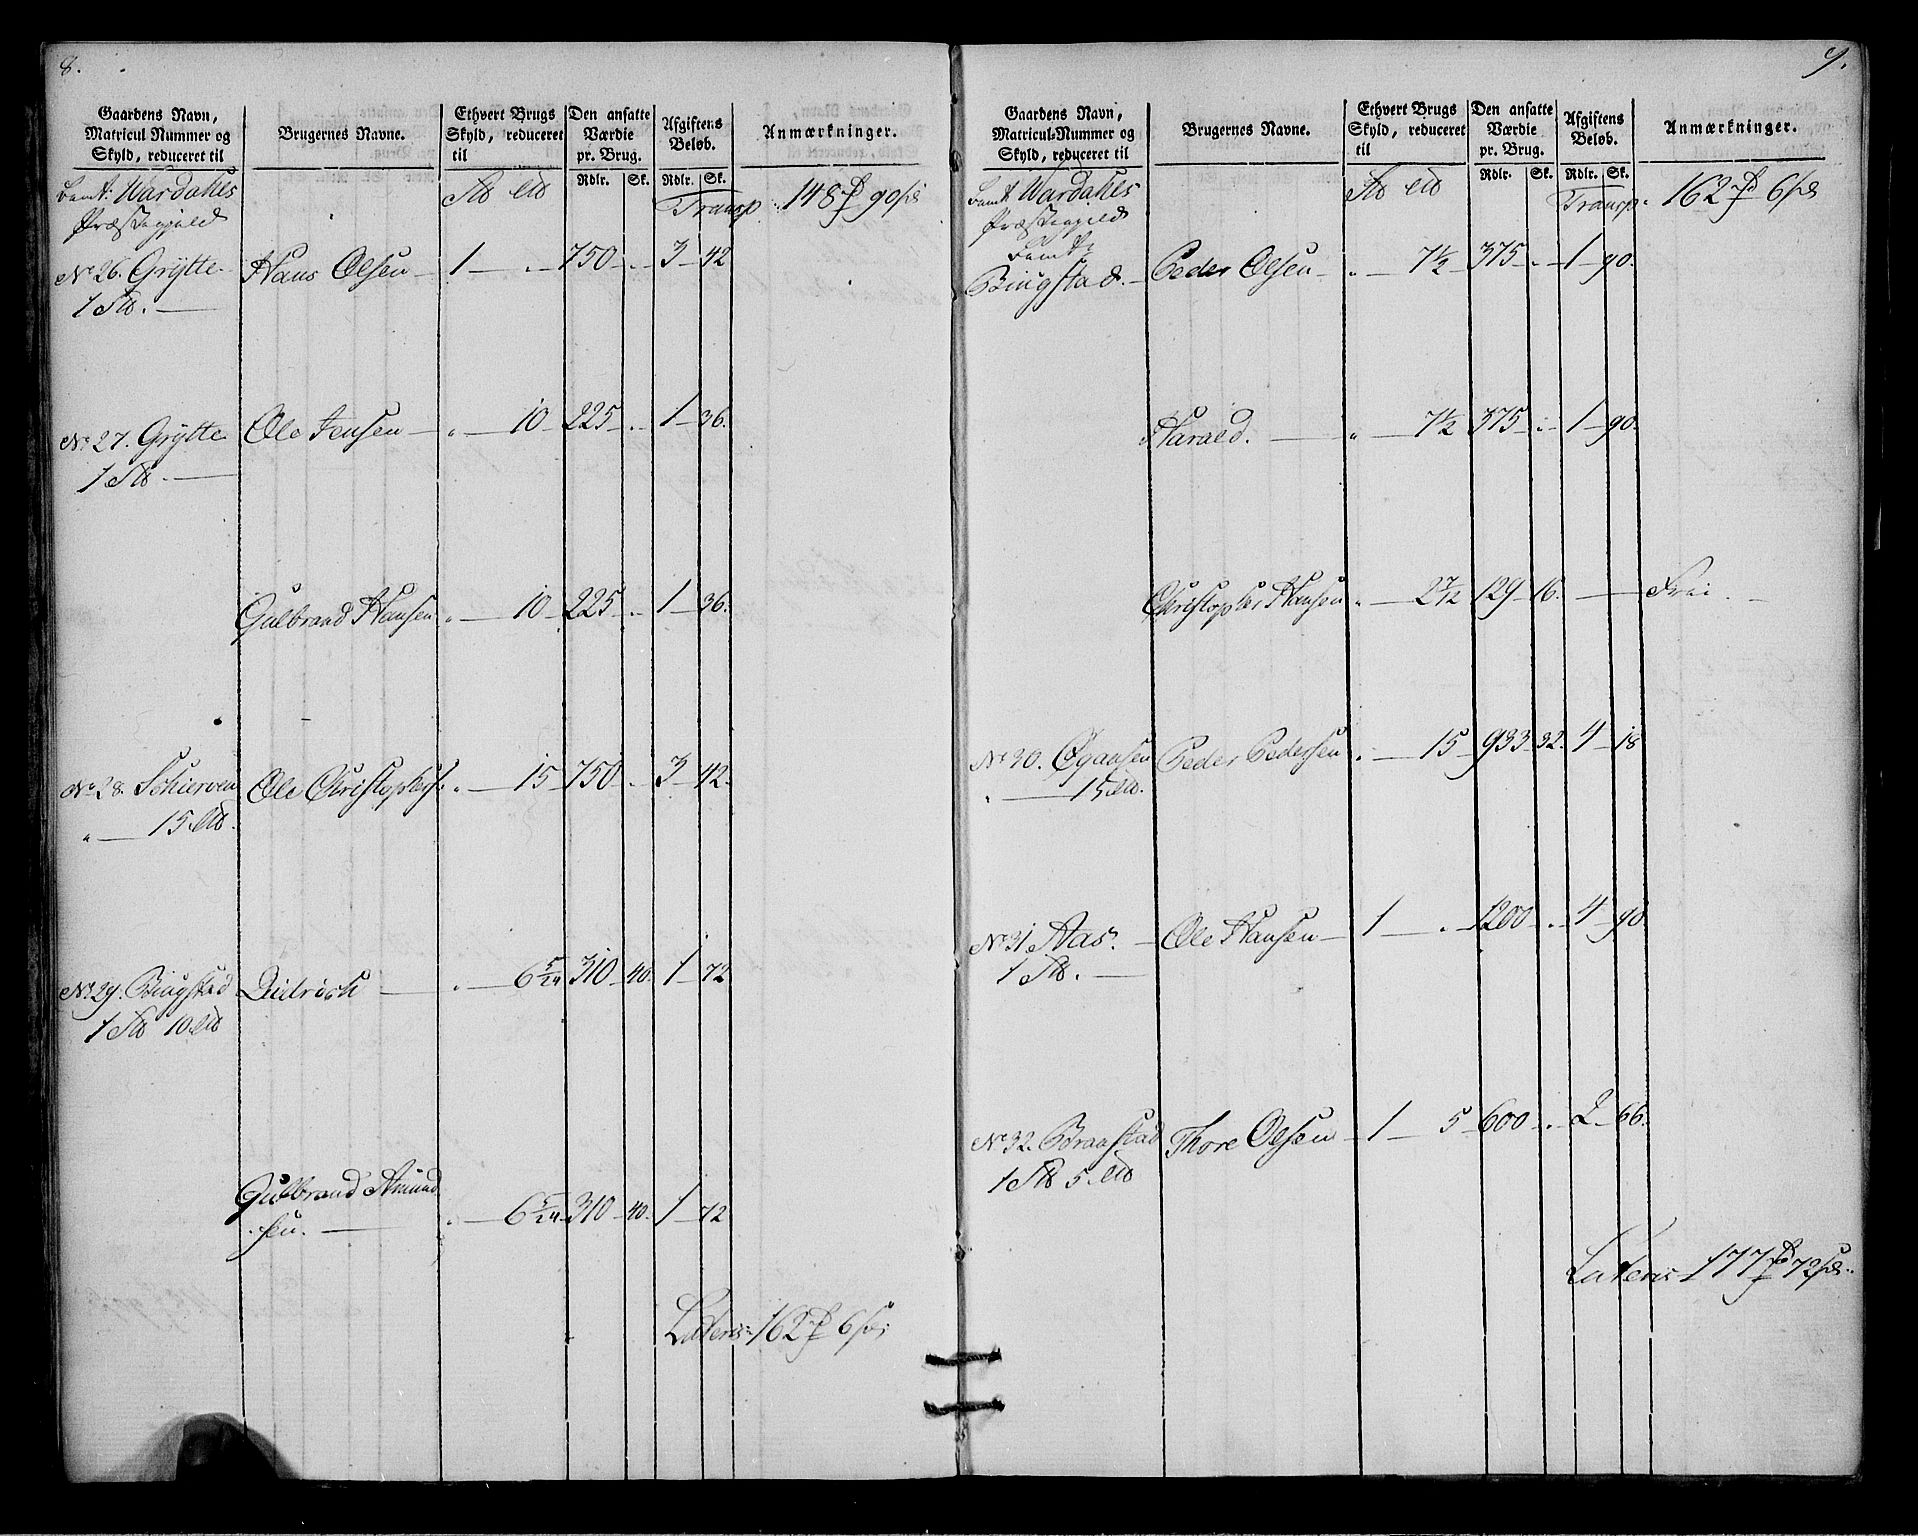 8.
Gaardens Navn,
Matricul Nummer og
Skyld, reduceret til
Brugernes Navne.
Ethvert Brugs
Skyld, reduceret
til
Den ansatte
Værdie
pr. Brug.
Afgiftens
Beløb.
Anmærkninger.
Rdlr. Sk. Rdlr. Sk.
Wardahls
Præstegjeld
Transp. 148 90
No 26. Grÿtte Hans Olsen 1 " 750 " 3 42
1
No 27. Grÿtte Ole Jensen " 10 225 " 1 36.
1
Gulbrand Hansen " 10 225 " 1 36.
No 28. Schierven Ole Christophers: " 15 750 " 3 42.
" 15
No 29. Bingstad Didrich " 6 5/24 310 40. 1 72
1 10
Gulbrand Amund
sen. " 6 5/24 310 40. 1 72
Lateris 162 6
9.
Gaardens Navn,
Matricul-Nummer og
Skyld, reduceret til
Brugernes Navne.
Ethvert Brugs
Skyld, reduceret
til
Den ansatte
Værdie
pr. Brug.
Afgiftens
Beløb.
Anmærkninger.
Rdlr. Sk. Rdlr. Sk.
Wardahls
Præstegjeld
Transp. 162 6
Bingstad. Peder Olsen " 7 1/2 375 " 1 90.
Harald. " 7 1/2 375 " 1 90.
Christopher Hansen " 2 7/12 129 16. Frei
No 30. Øgaarden Peder Pedersen " 15 933 32. 4 18
" 15
No 31 Aas. Ole Hansen 1 " 1200 " 4 90
1
No 32. Braastad Thore Olsen 1 5 600 " 2 66.
1 5
Lateris 177 72